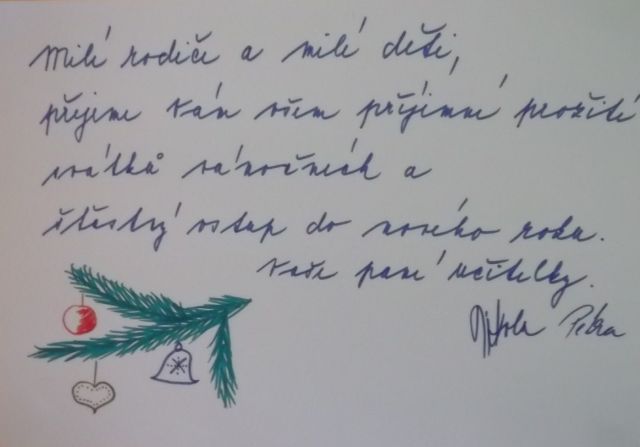 Milé rodiče a milé děti,
přejeme Vám všem příjemné prožití
svátků vánočních a
šťastný vstup do nového roku.
Vaše paní učitelky.
Nikola Petra